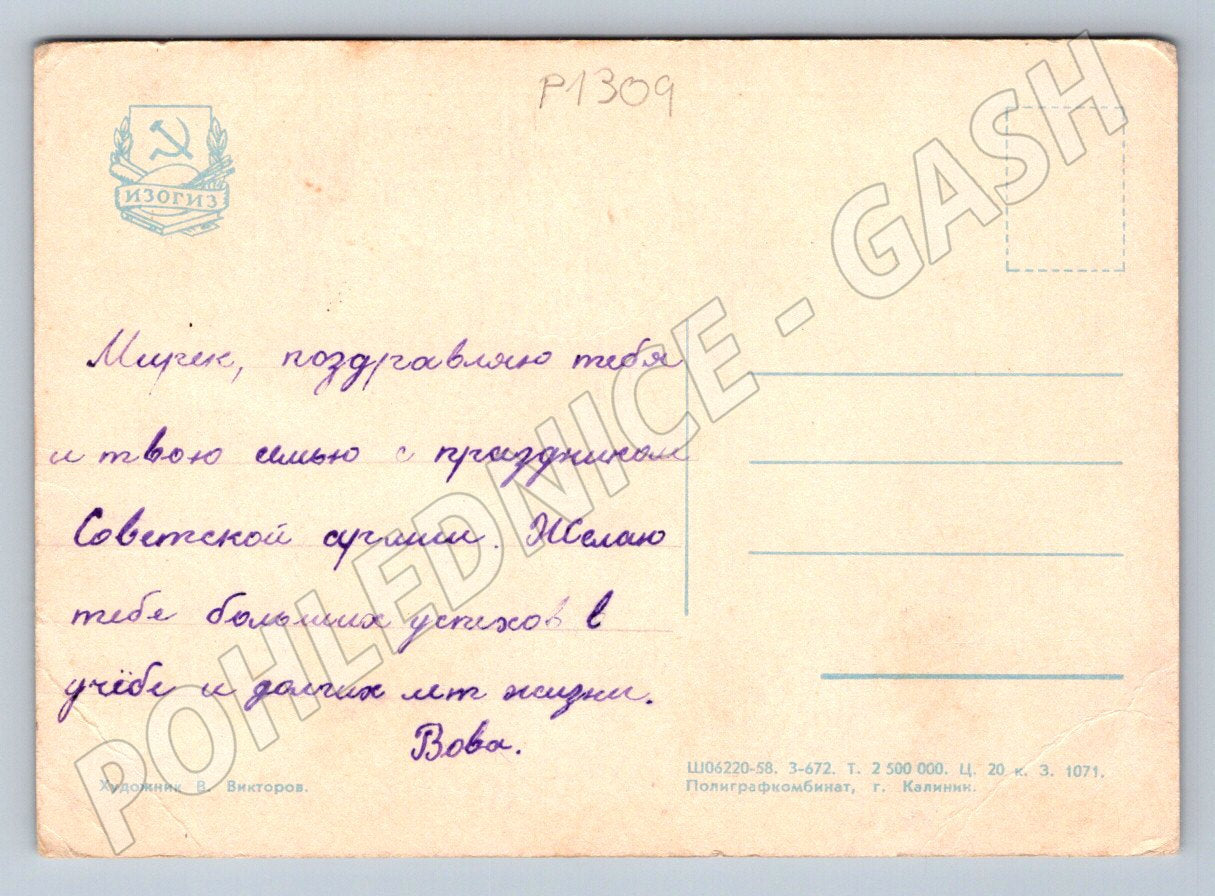 P1309
ИЗОГИЗ
Мирек, поздравляю тебя
и твою семью с праздником
Советской армии. Желаю
тебе больших успехов в
учёбе и долгих лет жизни.
Вова.
Художник В. Викторов.
Ш06220-58. З-672. Т. 2 500 000. Ц. 20 к. З. 1071.
Полиграфкомбинат, г. Калинин.
POHLEDNICE - GASH